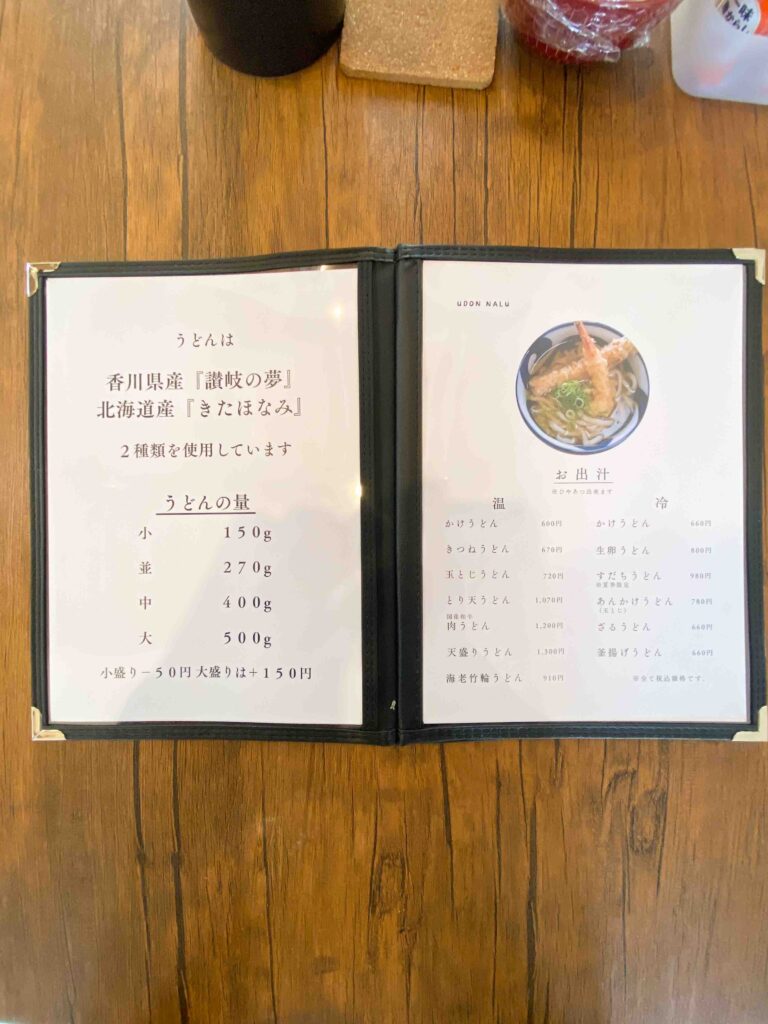 一味
うどんは
香川県産『讃岐の夢』
北海道産『きたほなみ』
２種類を使用しています
うどんの量
小 １５０g
並 ２７０g
中 ４００g
大 ５００g
小盛り－５０円 大盛りは＋１５０円
UDON NALU
お出汁
温
かけうどん 600円
きつねうどん 670円
玉とじうどん 720円
とり天うどん 1,070円
国産和牛
肉うどん 1,200円
天盛りうどん 1,300円
海老竹輪うどん 910円
冷
かけうどん 660円
生卵うどん 800円
すだちうどん 980円
※夏季限定
あんかけうどん 780円
(玉とじ)
ざるうどん 660円
釜揚げうどん 660円
※全て税込価格です。